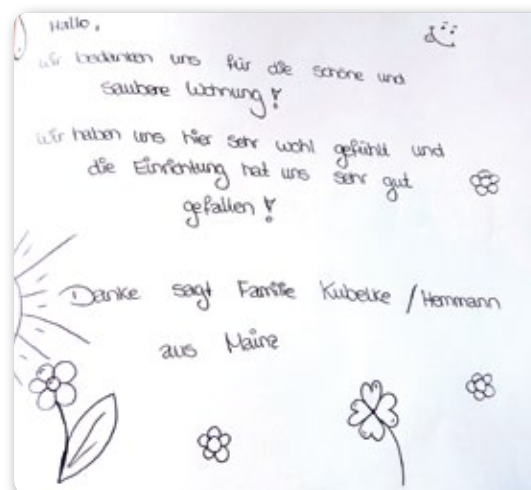 Hallo,
wir bedanken uns für die schöne und
saubere Wohnung!
wir haben uns hier sehr wohl gefühlt und
die Einrichtung hat uns sehr gut
gefallen!
Danke sagt Familie Kubelke / Hemmann
aus Mainz